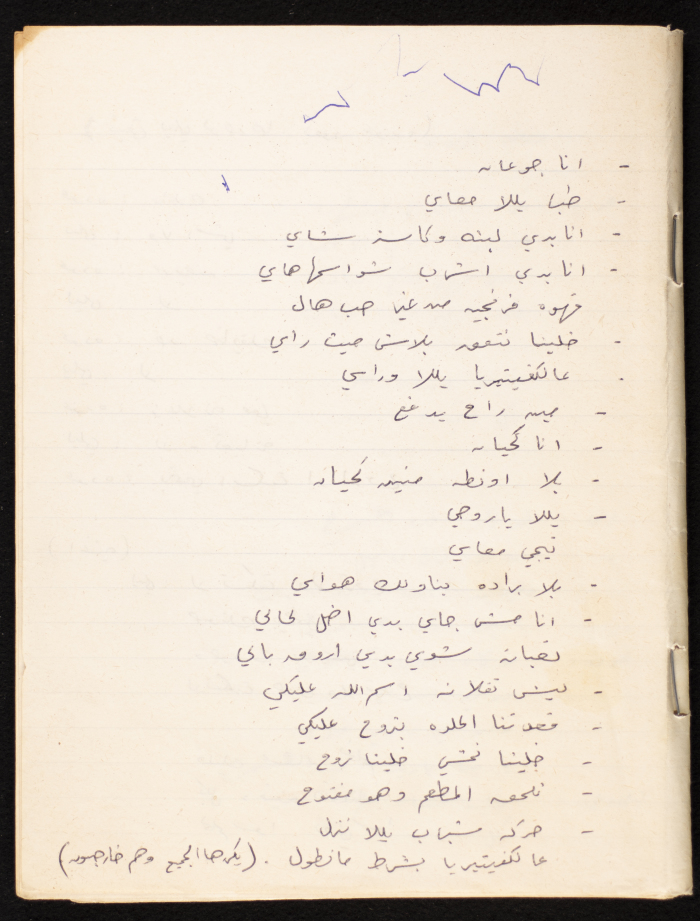 - انا جوعان
- طب يللا معاي
- انا بدي لبنه وكاسة شاي
- انا بدي اشرب شو اسمها هاي
قهوه فرنجيه من غير حب هال
- خلينا نتفق بلاش حيث راي
- عالكفيتيريا يللا وراي
- مين راح يدفع
- انا كحيان
- بلا اونطه منيش كحيان
- يللا يا روحي
تيجي معاي
- بلا براده بناولك هواي
- انا مش جاي بدي اضل لحالي
تعبان شوي بدي اروق بالي
- ليش تقلانه اسم الله عليكي
- قعدتنا الحلوه بتروح عليكي
- خلينا نمشي خلينا نروح
- نلحق المطعم وهو مفتوح
- حركه شباب يللا ننزل
عالكفيتيريا بشرط ما نطول . (يكررها الجميع وهم خارجون)